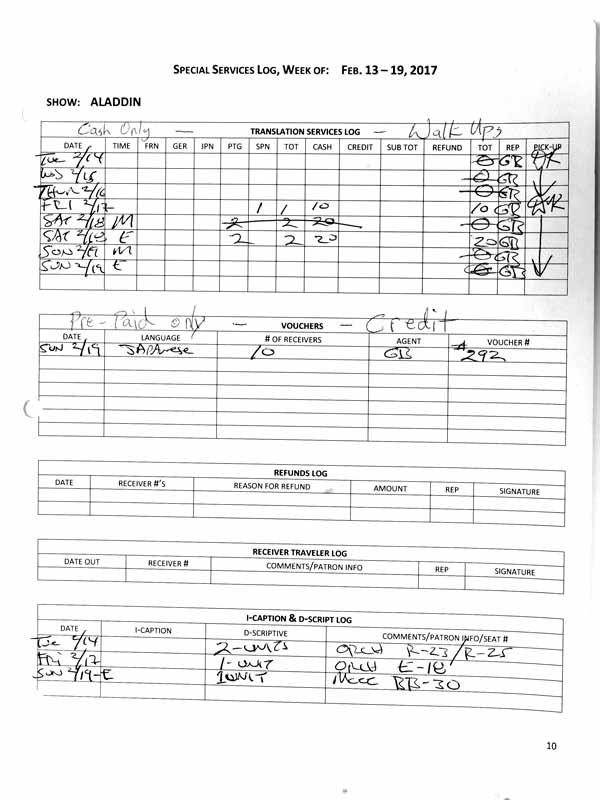 SPECIAL SERVICES LOG, WEEK OF: FEB. 13 – 19, 2017
SHOW: ALADDIN
Cash Only — TRANSLATION SERVICES LOG — Walk Ups
DATE TIME FRN GER JPN PTG SPN TOT CASH CREDIT SUB TOT REFUND TOT REP PICK-UP
Tue 2/14 0 GB
2/15 0 GB
THUR 2/16 0 GB
FRI 2/17 1 1 10 10 GB
SAT 2/18 M 2 2 20 0 GB
SAT 2/18 E 2 2 20 20 GB
SUN 2/19 M 0 GB
SUN 2/19 E 0 GB
Pre-Paid only — VOUCHERS — Credit
DATE LANGUAGE # OF RECEIVERS AGENT VOUCHER #
SUN 2/19 JAPANese 10 GB #292
REFUNDS LOG
DATE RECEIVER #'S REASON FOR REFUND AMOUNT REP SIGNATURE
RECEIVER TRAVELER LOG
DATE OUT RECEIVER # COMMENTS/PATRON INFO REP SIGNATURE
I-CAPTION & D-SCRIPT LOG
DATE I-CAPTION D-SCRIPTIVE COMMENTS/PATRON INFO/SEAT #
Tue 2/14 2-UNITS ORCH R-23/R-25
FRI 2/17 1-UNIT ORCH E-18
SUN 2/19-E 1UNIT BB-30
10